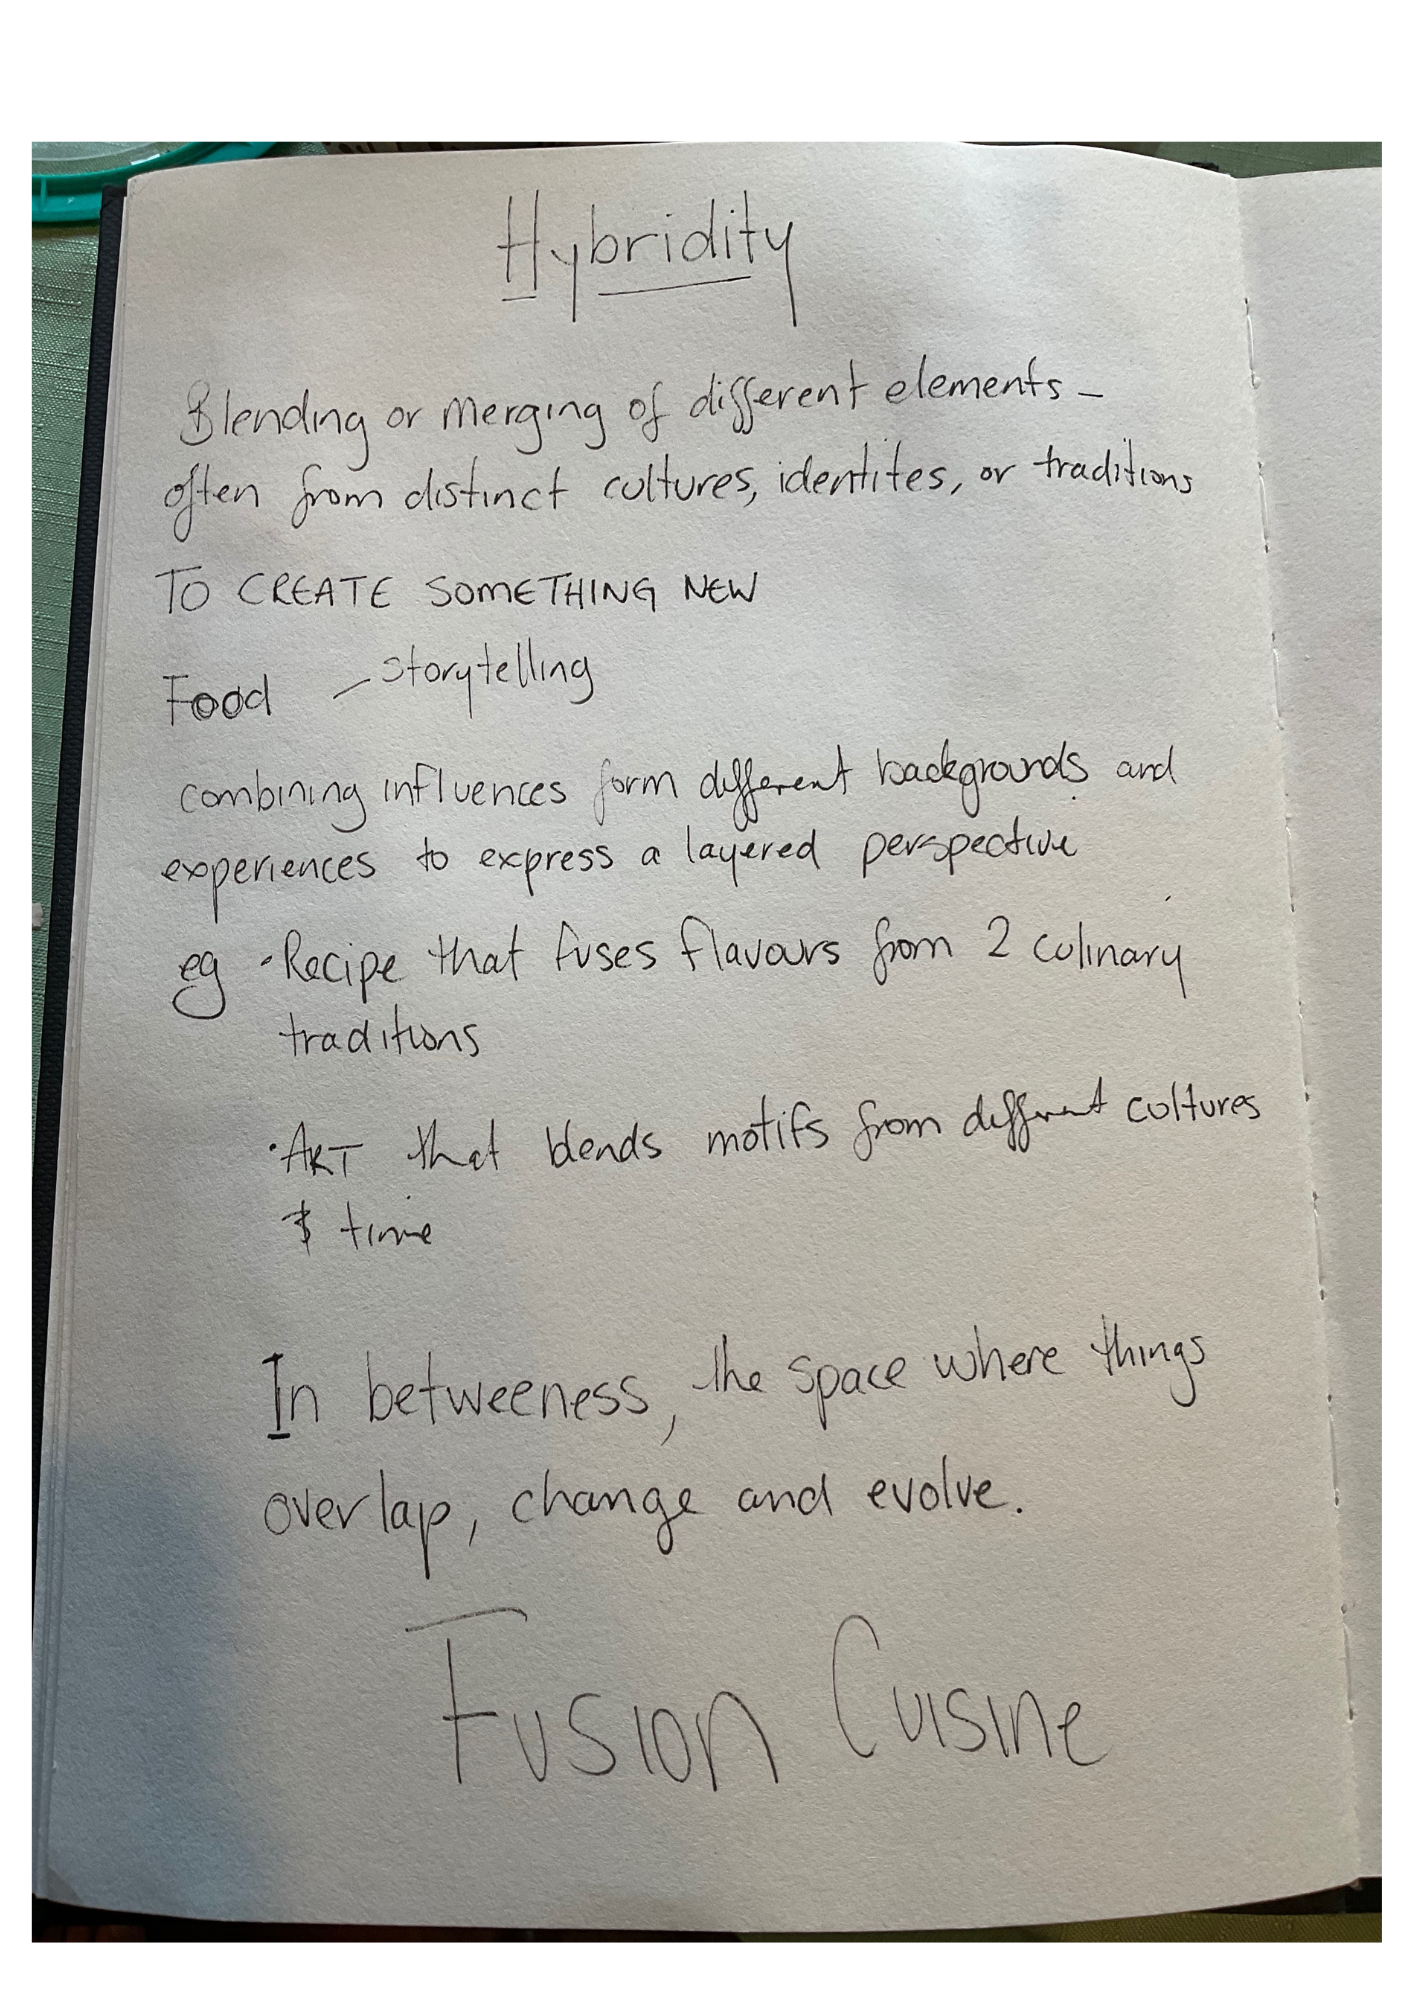 Hybridity
Blending or merging of different elements -
often from distinct cultures, identites, or traditions
TO CREATE SOMETHING NEW
Food - storytelling
combining influences form different backgrounds and
experiences to express a layered perspective
eg • Recipe that fuses flavours from 2 culinary
traditions
• ART that blends motifs from different cultures
& time
In betweeness, the space where things
overlap, change and evolve.
Fusion Cuisine